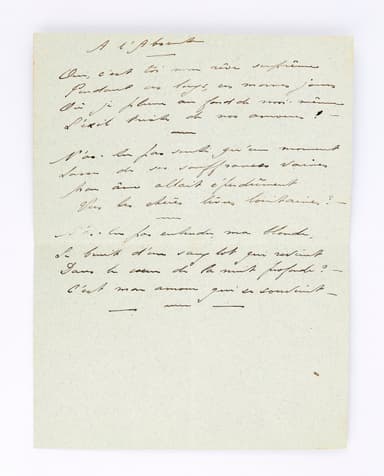 A l'Absent
Oui, c'est toi mon rêve suprême
Pendant ces longs, ces mornes jours
Où je pleure au fond de moi-même
L'exil triste de nos amours ! -
N'as-tu pas senti qu'en un moment
de ses souffrances vaines
mon âme allait éperdument
Vers les chères lèvres lointaines ? -
N'as-tu pas entendu, ma blonde,
Le bruit d'un sanglot qui revient
Dans le cœur de la nuit profonde ? -
C'est mon amour qui se souvient -